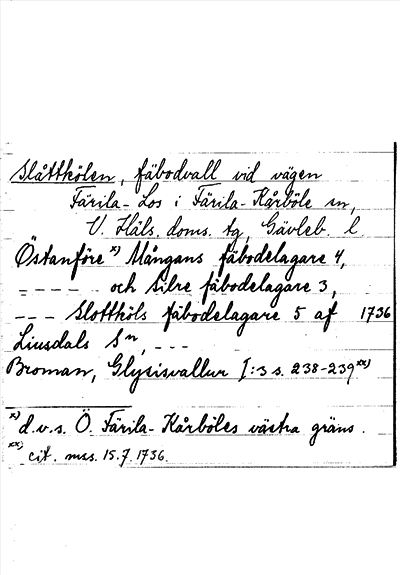 Slåttkölen, fäbodvall vid vägen
Färila-Los i Färila-Kårböle sn,
V. Häls. doms. tg, Gävleb. l
Östanföre x) Mångans fäbodelagare 4,
---- och Silre fäbodelagare 3,
--- Slottköls fäbodelagare 5 af 1736
Liusdals Sn, ---
Broman, Glysisvallur I:3 s. 238-239 xx)
x) d.v.s. Ö. Färila-Kårböles västra gräns.
xx) cit. mss. 15.7.1736.